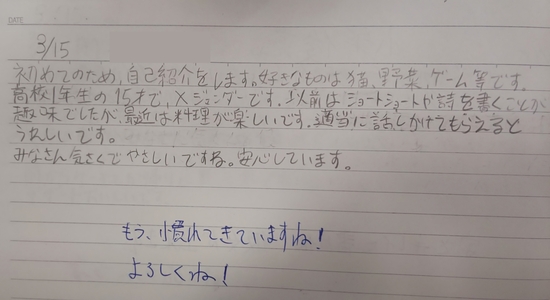 DATE
3/15
初めてのため、自己紹介をします。好きなものは猫、野菜、ゲーム等です。
高校1年生の15才で、Xジェンダーです。以前はショートショートや詩を書くことが
趣味でしたが、最近は料理が楽しいです。適当に話しかけてもらえると
うれしいです。
みなさん気さくでやさしいですね。安心しています。
もう、慣れてきていますね!
よろしくね!